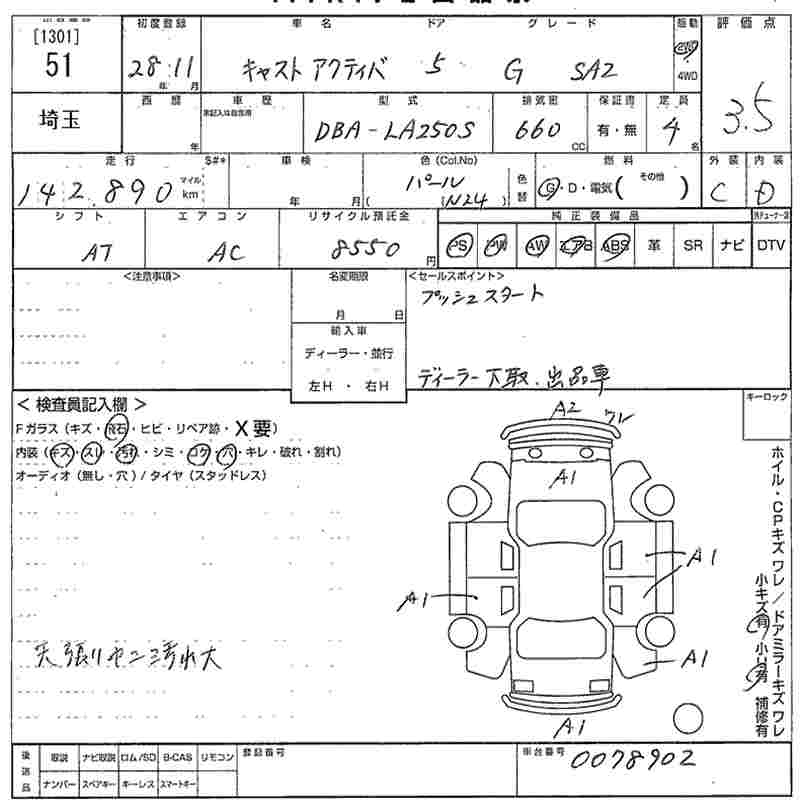 [1301]
51
初度登録
28・11
年 月
車名
キャスト アクティバ
ドア
5
グレード
G SA2
駆動
2WD
4WD
評価点
3.5
埼玉
西暦
年
車歴
未記入は自家用
型式
DBA-LA250S
排気量
660
CC
保証書
有・無
定員
4
名
走行
142,890
マイル
km
S#*
車検
年 月
色(Col.No)
パール
(N24)
色替
燃料
G・D・電気( その他 )
外装
C
内装
D
シフト
AT
エアコン
AC
リサイクル預託金
8550
円
純正装備品
PS PW AW エアB ABS 革 SR ナビ
DTV
<注意事項>
名変期限
月 日
輸入車
ディーラー・並行
左H・右H
<セールスポイント>
プッシュスタート
ディーラー下取・出品車
<検査員記入欄>
Fガラス(キズ・飛石・ヒビ・リペア跡・X要)
内装(キズ・スレ・汚れ・シミ・コゲ・穴・キレ・破れ・割れ)
オーディオ(無し・穴)/タイヤ(スタッドレス)
キーロック
A2 ワレ
A1
A1
A1
A1
A1
ホイル・CPキズ ワレ/ドアミラーキズ ワレ
小キズ有 小凹有 補修有
天張りヤニ汚れ大
後送品
取説 ナビ取説 ロム/SD B-CAS リモコン
ナンバー スペアキー キーレス スマートキー
登録番号
車台番号
0078902